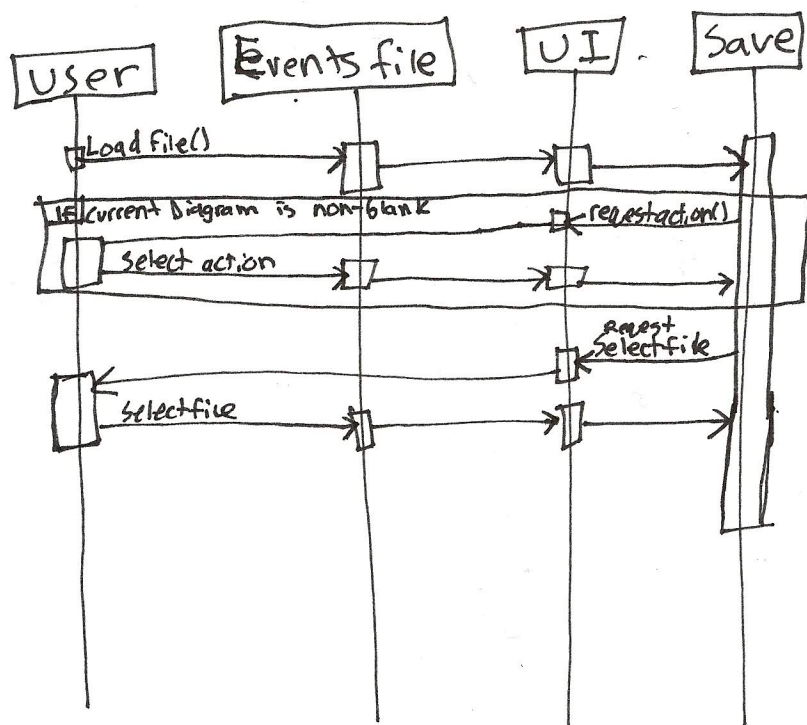 user
Events file
UI
Save
Load file()
IF Current Diagram is non-blank
reqestaction()
Select action
Reqest
Selectfile
Selectfile